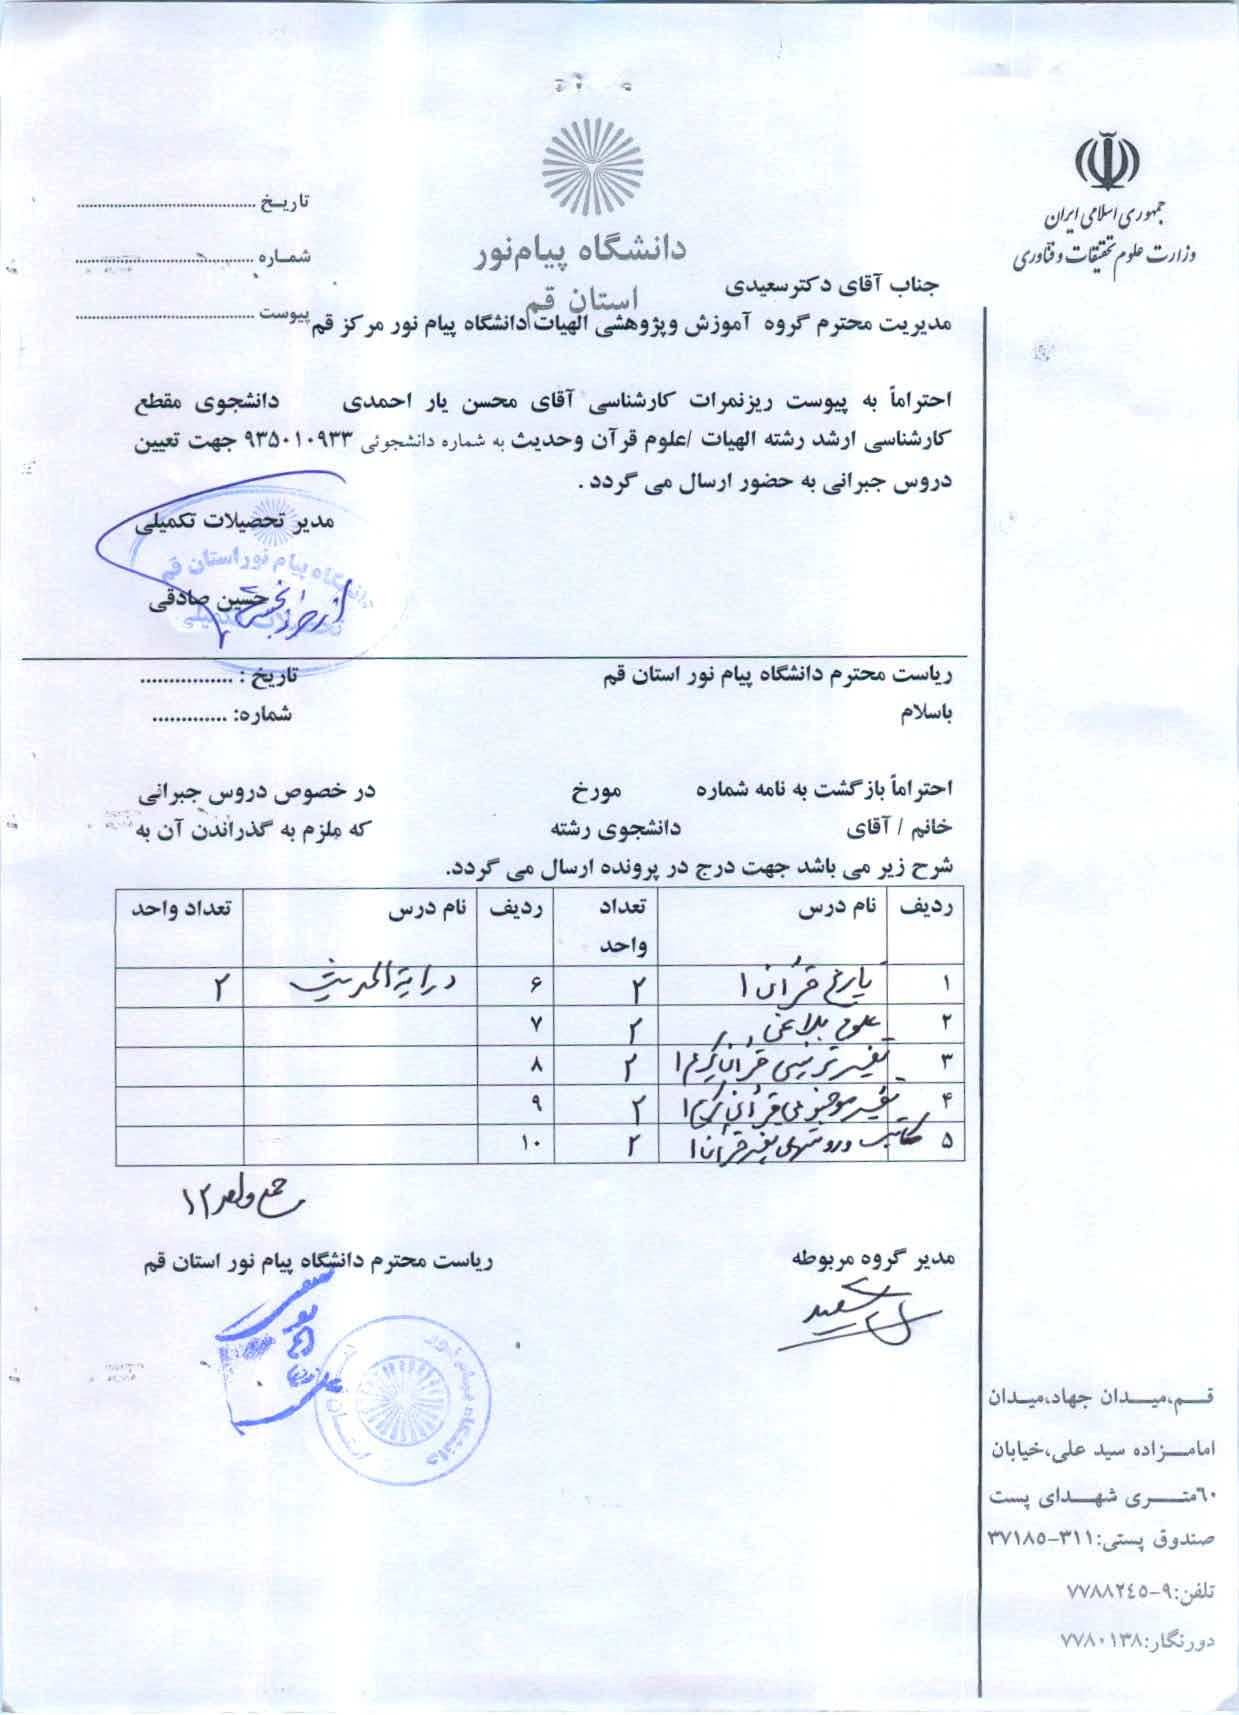 جمهوری اسلامی ایران
وزارت علوم تحقیقات و فناوری
دانشگاه پیام‌نور
استان قم
تاریـخ ........................................
شمـاره ........................................
پیوست ........................................
جناب آقای دکترسعیدی
مدیریت محترم گروه آموزش وپژوهشی الهیات دانشگاه پیام نور مرکز قم
احتراماً به پیوست ریزنمرات کارشناسی آقای محسن یار احمدی دانشجوی مقطع
کارشناسی ارشد رشته الهیات /علوم قرآن وحدیث به شماره دانشجوئی ۹۳۵۰۱۰۹۳۳ جهت تعیین
دروس جبرانی به حضور ارسال می گردد .
مدیر تحصیلات تکمیلی
حسین صادقی
دانشگاه پیام نور استان قم
تحصیلات تکمیلی
ریاست محترم دانشگاه پیام نور استان قم تاریخ : ................
باسلام شماره: .............
احتراماً بازگشت به نامه شماره مورخ در خصوص دروس جبرانی
خانم / آقای دانشجوی رشته که ملزم به گذراندن آن به
شرح زیر می باشد جهت درج در پرونده ارسال می گردد.
ردیف نام درس تعداد واحد ردیف نام درس تعداد واحد
۱ تاریخ قرآن ۱ ۲ ۶ درایة الحدیث ۲
۲ علوم بلاغی ۲ ۷
۳ تفسیر ترتیبی قرآن کریم ۱ ۲ ۸
۴ تفسیر موضوعی قرآن کریم ۱ ۲ ۹
۵ مکاتب و روشهای تفسیر قرآن ۱ ۲ ۱۰
جمع واحد ۱۲
مدیر گروه مربوطه ریاست محترم دانشگاه پیام نور استان قم
دانشگاه پیام نور
قـــم،میـــدان جهاد،میـدان
امامـــزاده سید علی،خیابان
۶۰متـــری شهـــدای پست
صندوق پستی:۳۱۱-۳۷۱۸۵
تلفن:۹-۷۷۸۸۲٤۵
دورنگار:۷۷۸۰۱۳۸